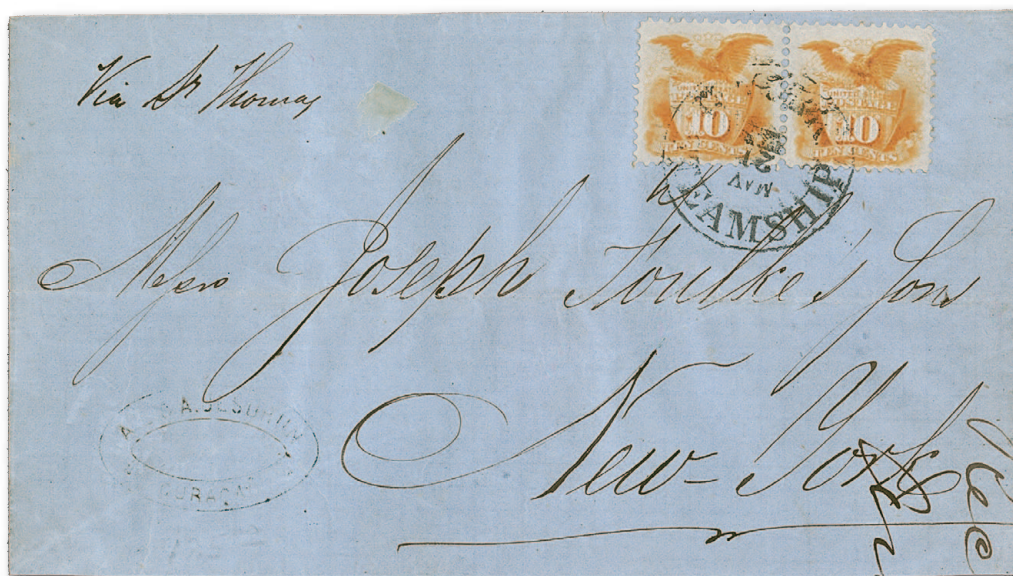 Via St Thomas
10 10
TEN CENTS
STEAMSHIP
MAY
Messrs Joseph Foulke's Sons
New-York
A. JESURUN
CURAÇAO